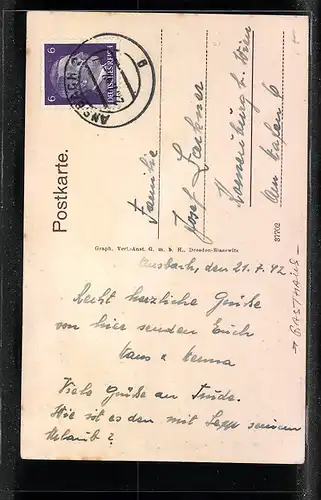 6 6
DEUTSCHES REICH
ANSBACH 2
Postkarte.
Familie
Josef Lackner
Korneuburg b. Wien
Am Hafen 6
Graph. Verl.-Anst. G. m. b. H., Dresden-Blasewitz
37702
Ansbach, den 21.7.42
Recht herzliche Grüße
von hier senden Euch
Hans &
Viele Grüße an Trude.
Wie ist es den mit Sepp seinem
Urlaub?
→ GASTHAUS -